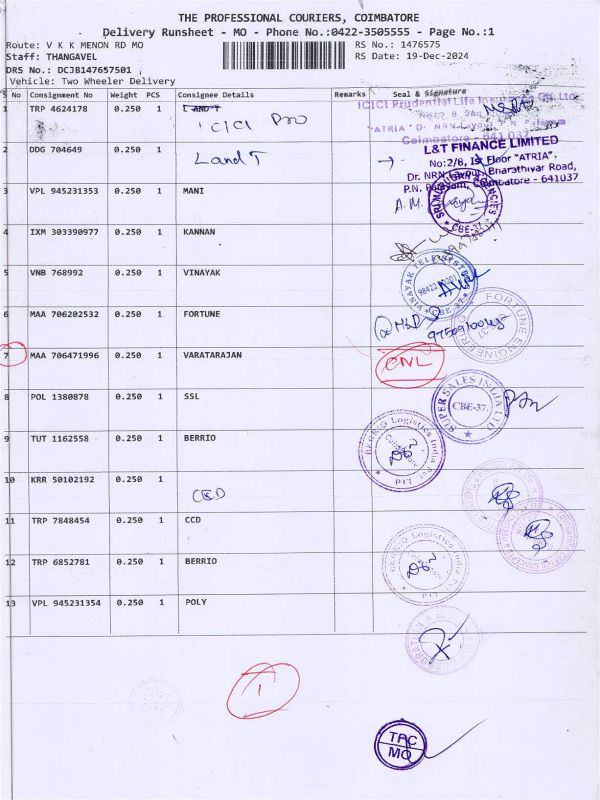 THE PROFESSIONAL COURIERS, COIMBATORE
Delivery Runsheet - MO - Phone No.:0422-3505555 - Page No.:1
Route: V K K MENON RD MO
RS No.: 1476575
Staff: THANGAVEL
RS Date: 19-Dec-2024
DRS No.: DCJB147657501
Vehicle: Two Wheeler Delivery
S No Consignment No Weight PCS Consignee Details Remarks Seal & Signature
1 TRP 4624178 0.250 1 LANDT
ICICI Pro
ICICI Prudential Life Insurance Co. Ltd
"ATRIA" Dr NRN Layout
Coimbatore - 641 037
2 DDG 704649 0.250 1 Land T
L&T FINANCE LIMITED
No:2/8, 1st Floor "ATRIA",
Dr. NRN Layout, Bharathiyar Road,
P.N. Palayam, Coimbatore - 641037
3 VPL 945231353 0.250 1 MANI
AGENCIES
CBE-37.
4 IXM 303390977 0.250 1 KANNAN
5 VNB 768992 0.250 1 VINAYAK
VINAYAK TELESYSTEMS
CBE-37
6 MAA 706202532 0.250 1 FORTUNE
FORTUNE ENGINEERING
7 MAA 706471996 0.250 1 VARATARAJAN
CNL
8 POL 1380878 0.250 1 SSL
SUPER SALES INDIA LTD
CBE-37.
9 TUT 1162558 0.250 1 BERRIO
BERRIO Logistics India Pvt
10 KRR 50102192 0.250 1
CCD
11 TRP 7848454 0.250 1 CCD
12 TRP 6852781 0.250 1 BERRIO
BERRIO Logistics India Pvt
13 VPL 945231354 0.250 1 POLY
1
TPC
MO